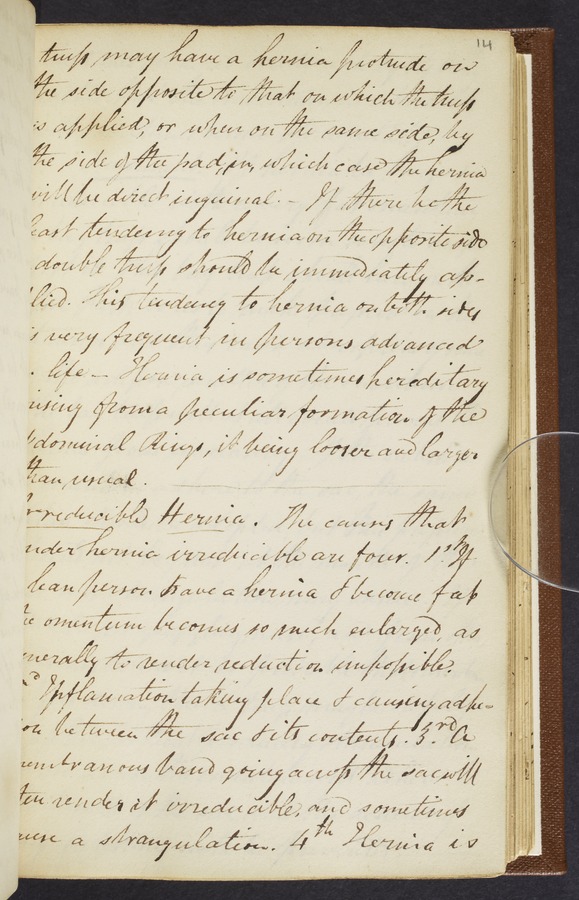 14
truss may have a hernia protrude on
the side opposite to that on which the truss
is applied, or when on the same side, by
the side of the pad, in which case the hernia
will be direct inguinal. – If there be the
least tendency to hernia on the opposite side
double truss should be immediately ap-
lied. This tendency to hernia on both sides
is very frequent in persons advanced
life – Hernia is sometimes hereditary
rising from a peculiar formation of the
bdominal Rings, it being looser and larger
than usual.
Irreducible Hernia. The causes that
ender hernia irreducible are four. 1st If
lean person have a hernia & become fat
he omentum becomes so much enlarged, as
enerally to render reduction impossible.
nd Inflamation taking place & causing adhe-
ion between the sac & its contents. 3rd A
membranous band going across the sac will
ten render it irreducible, and sometimes
ause a strangulation. 4th Hernia is